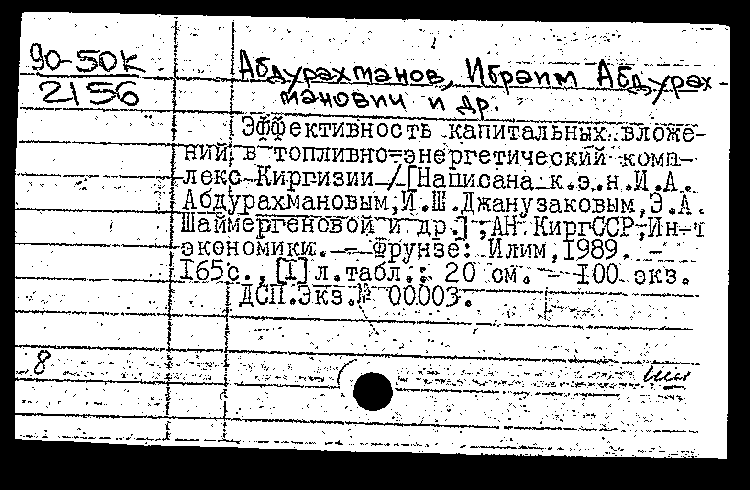 90-50к
2156
Абдурахманов, Ибраим Абдурах-
манович и др.
Эффективность капитальных вложе-
ний в топливно-энергетический комп-
лекс Киргизии /[Написана к.э.н.И.А.
Абдурахмановым,И.Ш.Джанузаковым,Э.А.
Шаймергеновой и др.] ;АН КиргССР,Ин-т
экономики. — Фрунзе: Илим,1989. —
165с.,[1]л.табл.; 20 см. — 100 экз.
ДСП.Экз.№ 00003.
8